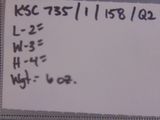 KSC 735/1/158/Q2
L-2=
W-3=
H-4=
Wgt.- 6 oz.